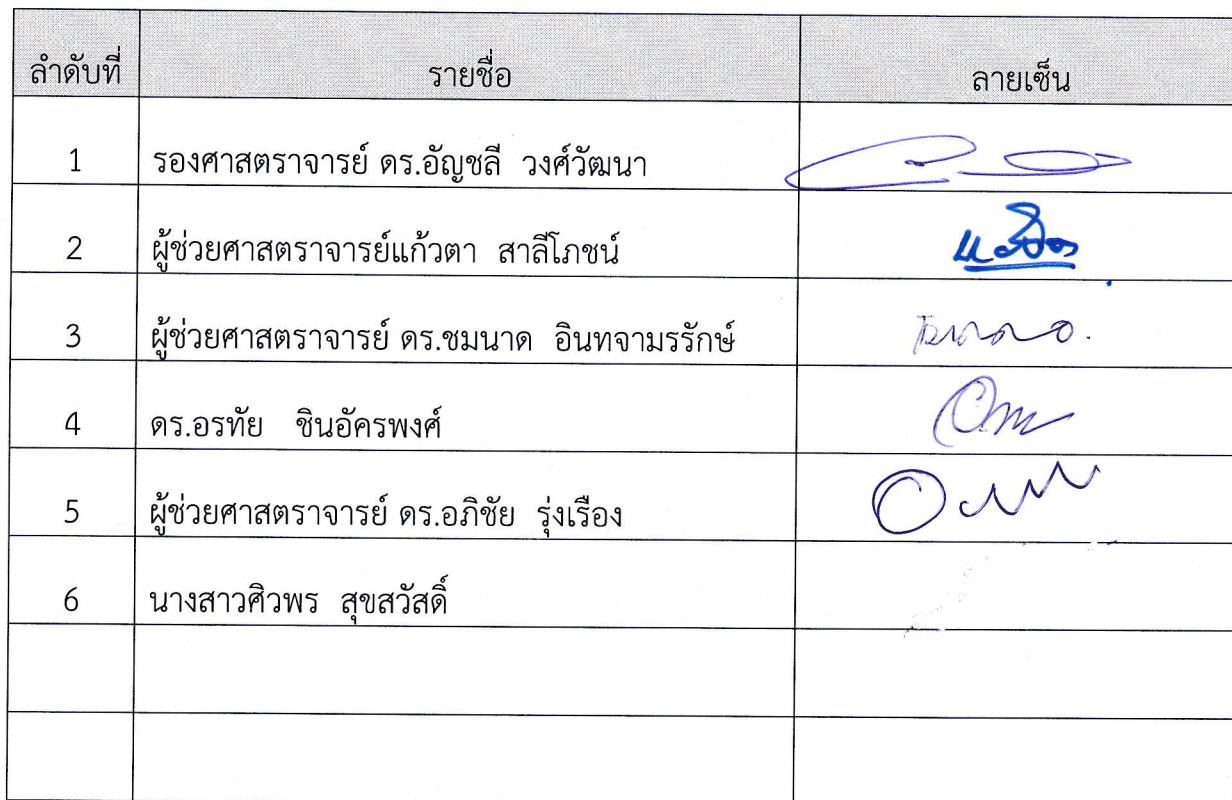 ลำดับที่ รายชื่อ ลายเซ็น
1 รองศาสตราจารย์ ดร.อัญชลี วงศ์วัฒนา
2 ผู้ช่วยศาสตราจารย์แก้วตา สาลีโภชน์
3 ผู้ช่วยศาสตราจารย์ ดร.ชมนาด อินทจามรรักษ์
4 ดร.อรทัย ชินอัครพงศ์
5 ผู้ช่วยศาสตราจารย์ ดร.อภิชัย รุ่งเรือง
6 นางสาวศิวพร สุขสวัสดิ์